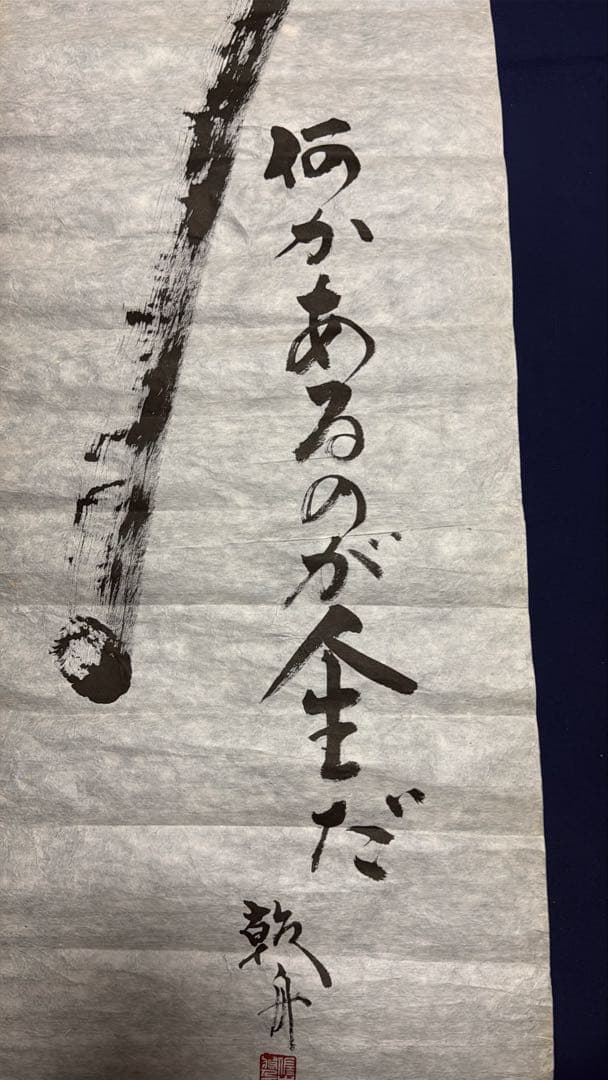 何かあるのが人生だ
乾舟